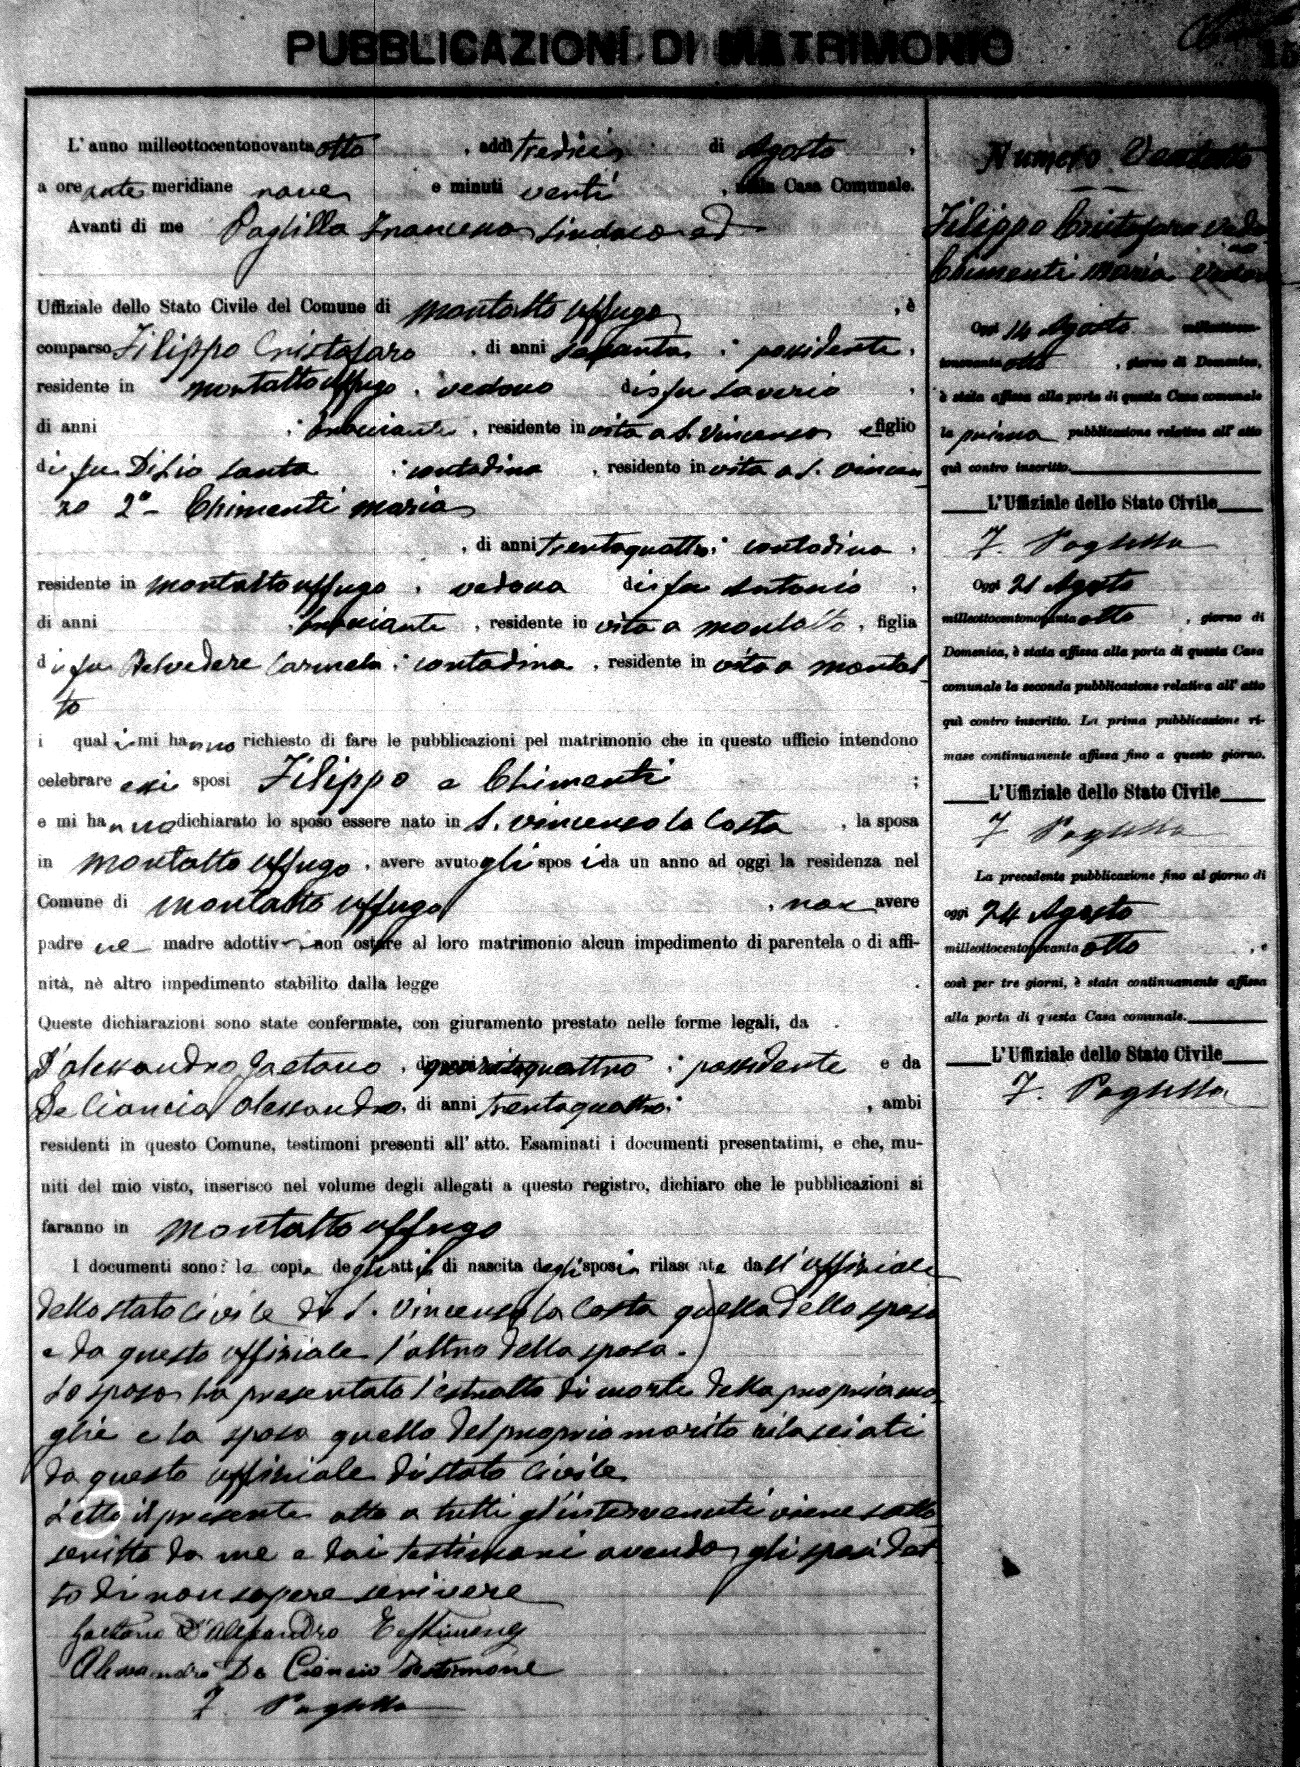 PUBBLICAZIONI DI MATRIMONIO
L'anno milleottocentonovanta otto , addì tredici di Agosto ,
a ore ante meridiane nove e minuti venti , nella Casa Comunale.
Avanti di me Francesco Sindaco ed
Uffiziale dello Stato Civile del Comune di Montalto Uffugo , è
comparso Filippo Cristofaro , di anni ; possidente ,
residente in Montalto Uffugo , vedovo di fu Saverio ,
di anni ; , residente in vita a S. Vincenzo e figlio
di fu Di Lio Santa ; contadina , residente in vita a S. Vincen
zo 2º - Chimenti Maria
, di anni trentaquattro ; contadina ,
residente in Montalto Uffugo , vedova di fu Antonio ,
di anni , residente in vita a Montalto , figlia
di fu Belvedere Carmela ; contadina , residente in vita a Montal
to
i quali mi hanno richiesto di fare le pubblicazioni pel matrimonio che in questo ufficio intendono
celebrare essi sposi Filippo e Chimenti ;
e mi hanno dichiarato lo sposo essere nato in S. Vincenzo la Costa , la sposa
in Montalto Uffugo , avere avuto gli sposi da un anno ad oggi la residenza nel
Comune di Montalto Uffugo , non avere
padre ne madre adottivi non ostare al loro matrimonio alcun impedimento di parentela o di affi-
nità, nè altro impedimento stabilito dalla legge .
Queste dichiarazioni sono state confermate, con giuramento prestato nelle forme legali, da
D'Alessandro Gaetano , di anni quarantaquattro ; possidente e da
De Ciancio Alessandro , di anni trentaquattro ; , ambi
residenti in questo Comune, testimoni presenti all'atto. Esaminati i documenti presentatimi, e che, mu-
niti del mio visto, inserisco nel volume degli allegati a questo registro, dichiaro che le pubblicazioni si
faranno in Montalto Uffugo
I documenti sono: le copie degli atti di nascita degli sposi rilasciate dall'uffiziale
dello stato civile di S. Vincenzo la Costa quella dello sposo
e da questo uffiziale l'altra della sposa.
Lo sposo ha presentato l'estratto di morte della propria mo
glie e la sposa quello del proprio marito rilasciati
da questo uffiziale di stato civile
Letto il presente atto a tutti gl'intervenuti viene sotto
scritto da me e dai testimoni avendo gli sposi det
to di non sapere scrivere
Gaetano D'Alessandro Testimone
Alessandro De Ciancio testimone
Numero Ventotto
Filippo Cristofaro vedo
vo
Chimenti Maria vedova
Oggi 14 Agosto milleottocen-
tonovanta otto , giorno di Domenica,
è stata affissa alla porta di questa Casa comunale
la prima pubblicazione relativa all'atto
quì contro inscritto.
L'Uffiziale dello Stato Civile
Oggi 21 Agosto
milleottocentonovanta otto , giorno di
Domenica, è stata affissa alla porta di questa Casa
comunale la seconda pubblicazione relativa all'atto
quì contro inscritto. La prima pubblicazione ri-
mase continuamente affissa fino a questo giorno.
L'Uffiziale dello Stato Civile
La precedente pubblicazione fino al giorno di
oggi 24 Agosto
milleottocentonovanta otto , e
così per tre giorni, è stata continuamente affissa
alla porta di questa Casa comunale.
L'Uffiziale dello Stato Civile